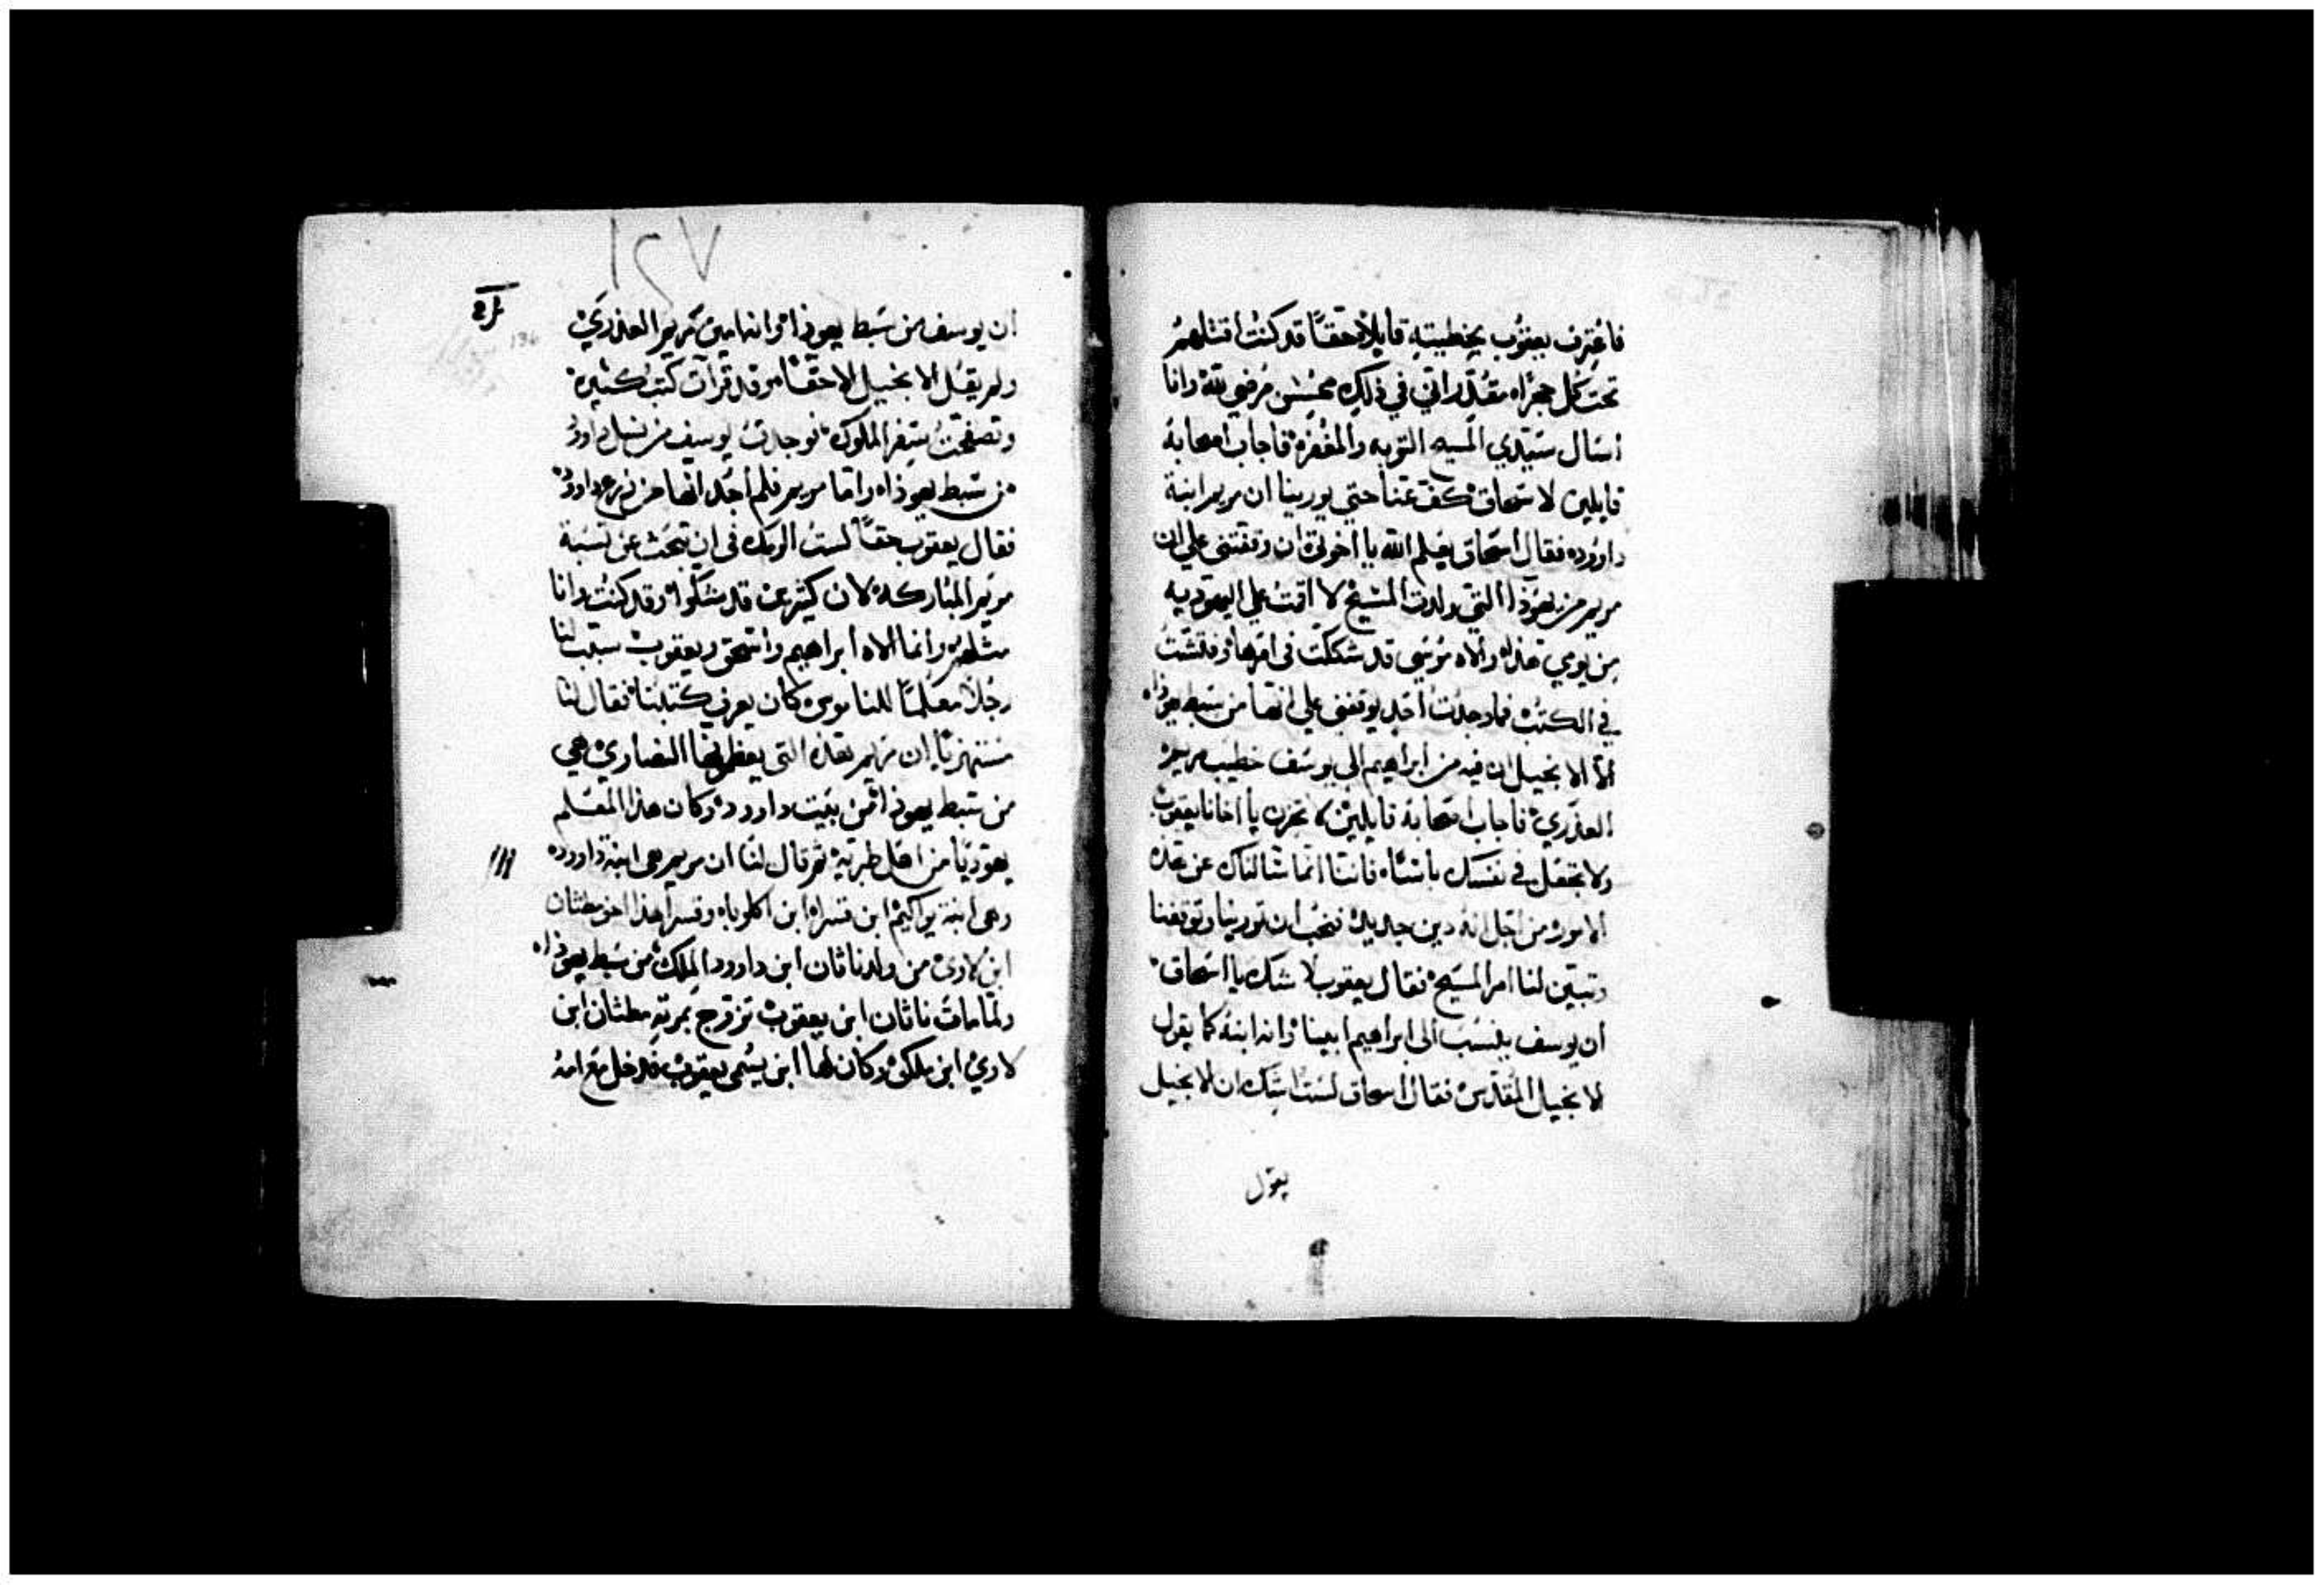 فاعترف يعقوب بخطيته قايلا حقا قد كنت اقتلهم
تحت كل حجراه مقدر اني في ذلك محسن مرضي لله وانا
اسال سيدي المسيح التوبه والمغفره فاجاب اصحابه
قايلين لاسحاق كف عنا حتي يورينا ان مريم ابنة
داووده فقال اسحاق يعلم الله يا اخوتي ان وقفتني علي ان
مريم من يهوذا التي ولدت المسيح لا اقمت علي اليهوديه
من يومي هذا والاه موسي قد شككت في امرها وفتشت
في الكتب فما وجدت احد يوقفني علي انها من سبط يهوذاه
الا الانجيل ان فيه من ابراهيم الي يوسف خطيب مريم
العذري فاجاب اصحابه قايلين لا تحزن يا اخانا يعقوب
ولا تجعل في نفسك باسنا فاننا انما سالناك عن هذه
الامور من اجل انه دين جديد نحب ان تورينا وتوقفنا
وتبين لنا امر المسيح فقال يعقوب لا شك يا اسحاق
ان يوسف ينسب الي ابراهيم ابينا وانه ابنه كما يقول
الانجيل المقدس فقال اسحاق لست اشك ان لانجيل
يقول
١٢٧
136
ان يوسف من سبط يهوذا وانه امين مريم العذري
ولم يقل الانجيل الا حقا وقد قرات كتب كثيره
وتصفحت سفر الملوك فوجدت يوسف من نسل داوود
من سبط يهوذاه واما مريم فلم اجد انها من زرع داوود
فقال يعقوب حقا لست الومك في ان تبحث عن نسبة
مريم المباركه لان كثيرين قد شكوا وقد كنت وانا
مثلهم وانما الاه ابراهيم واسحق ويعقوب سبب لنا
رجلا معلما للناموس كان يعرف كتبنا فقال لنا
مستهزيا ان مريم هذه التي يعظمها النصاري هي
من سبط يهوذا من بيت داوود وكان هذا المعلم
يهوديا من اهل طبريه ثم قال لنا ان مريم هي ابنة داووده
وهي ابنة يواكيم ابن قسراه ابن اكلوباه وقسرا هذا اخو مطثان
ابن لاوي من ولد ناثان ابن داوود الملك من سبط يهوذاه
ولما مات ناثان ابن يعقوب تزوج بمرته مطثان ابن
لاوي ابن ملكي وكان لها ابن يسمي يعقوب فدخل مع امه